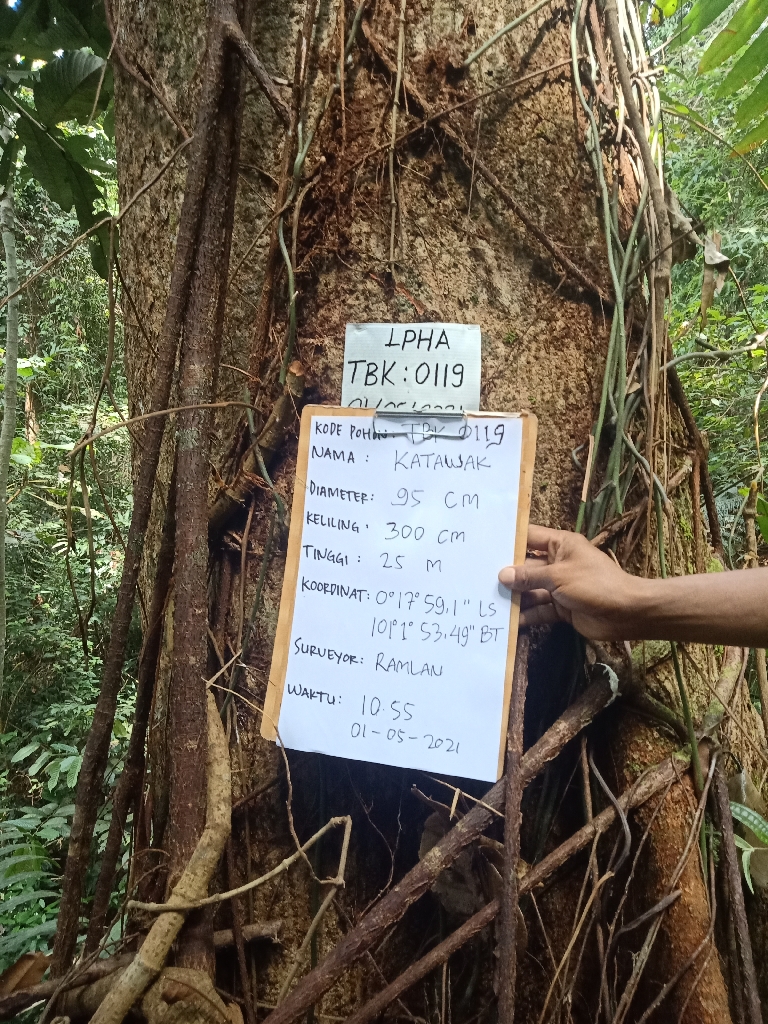 LPHA
TBK: 0119
KODE POHON: TBK 0119
NAMA: KATAWAK
DIAMETER: 95 CM
KELILING: 300 CM
TINGGI: 25 M
KOORDINAT: 0°17°59,1" LS
101°1°53,49" BT
SURVEYOR: RAMLAN
WAKTU: 10.55
01-05-2021